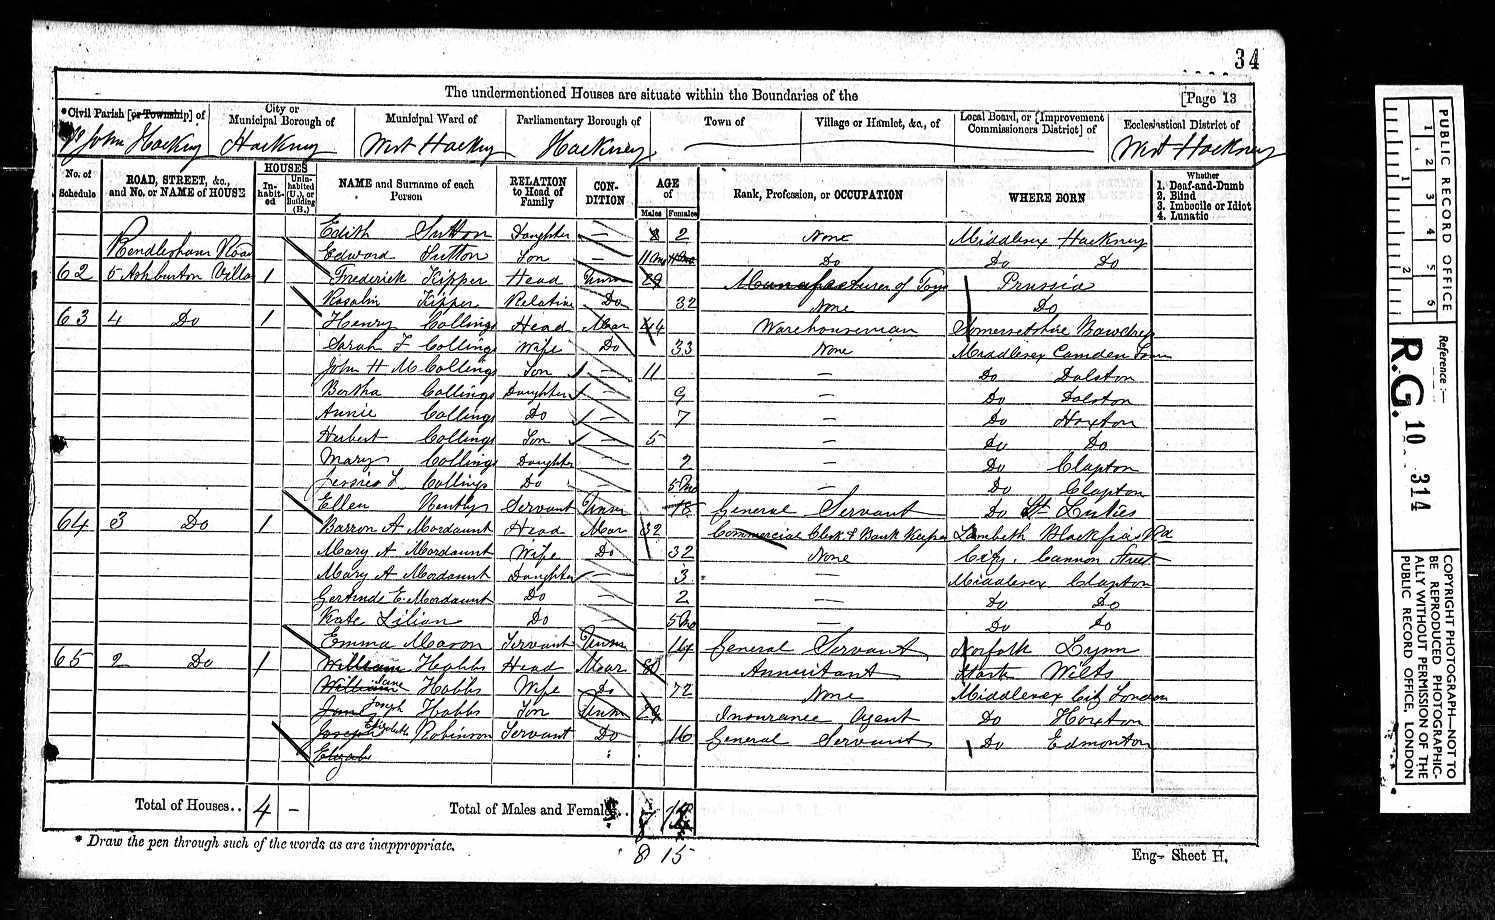 34
The undermentioned Houses are situate within the Boundaries of the [Page 13
*Civil Parish [or Township] of City or Municipal Borough of Municipal Ward of Parliamentary Borough of Town of Village or Hamlet, &c., of Local Board, or [Improvement Commissioners District] of Ecclesiastical District of
St John Hackney Hackney West Hackney Hackney West Hackney
No. of Schedule ROAD, STREET, &c., and No. or NAME of HOUSE HOUSES Inhabited Uninhabited (U.), or Building (B.) NAME and Surname of each Person RELATION to Head of Family CONDITION AGE of Males Females Rank, Profession, or OCCUPATION WHERE BORN Whether 1. Deaf-and-Dumb 2. Blind 3. Imbecile or Idiot 4. Lunatic
Edith Sutton Daughter — 2 None Middlesex Hackney
Rendlesham Road Edward Sutton Son — 11 Mo Do Do Do
62 5 Ashburton Villa 1 Frederick Kipper Head Unm 29 Manufacturer of Toys Prussia
Rosalin Kipper Relative Do 32 None Do
63 4 Do 1 Henry Collings Head Mar 44 Warehouseman Somersetshire
Sarah F Collings Wife Do 33 None Middlesex Camden Town
John H M Collings Son — 11 — Do Dalston
Bertha Collings Daughter — 9 — Do Dalston
Annie Collings Do — 7 — Do Hoxton
Herbert Collings Son — 5 — Do Do
Mary Collings Daughter — 2 — Do Clapton
Jessie L Collings Do — 5 Mo — Do Clapton
Ellen Servant Unm 18 General Servant Do St Lukes
64 3 Do 1 Barron A Mordaunt Head Mar 32 Commercial Clerk & Bank Keeper Lambeth Blackfriars Rd
Mary A Mordaunt Wife Do 32 None City, Cannon Street
Mary A Mordaunt Daughter — 3 — Middlesex Clapton
Gertrude E Mordaunt Do — 2 — Do Do
Kate Lilian Do — 5 Mo — Do Do
Emma Mason Servant Unm 14 General Servant Norfolk Lynn
65 2 Do 1 William Hobbs Head Mar 80 Annuitant Wilts
William Jane Hobbs Wife Do 72 None Middlesex City London
Jane Joseph Hobbs Son Unm 29 Insurance Agent Do Hoxton
Joseph Elizabeth Robinson Servant Do 16 General Servant Do Edmonton
Elizab
Total of Houses.. 4 — Total of Males and Females..
8 15
* Draw the pen through such of the words as are inappropriate.
Eng— Sheet H.
PUBLIC RECORD OFFICE
1 2 3 4 5 6
1 2
Reference :—
R.G. 10 314
COPYRIGHT PHOTOGRAPH—NOT TO
BE REPRODUCED PHOTOGRAPHIC-
ALLY WITHOUT PERMISSION OF THE
PUBLIC RECORD OFFICE, LONDON